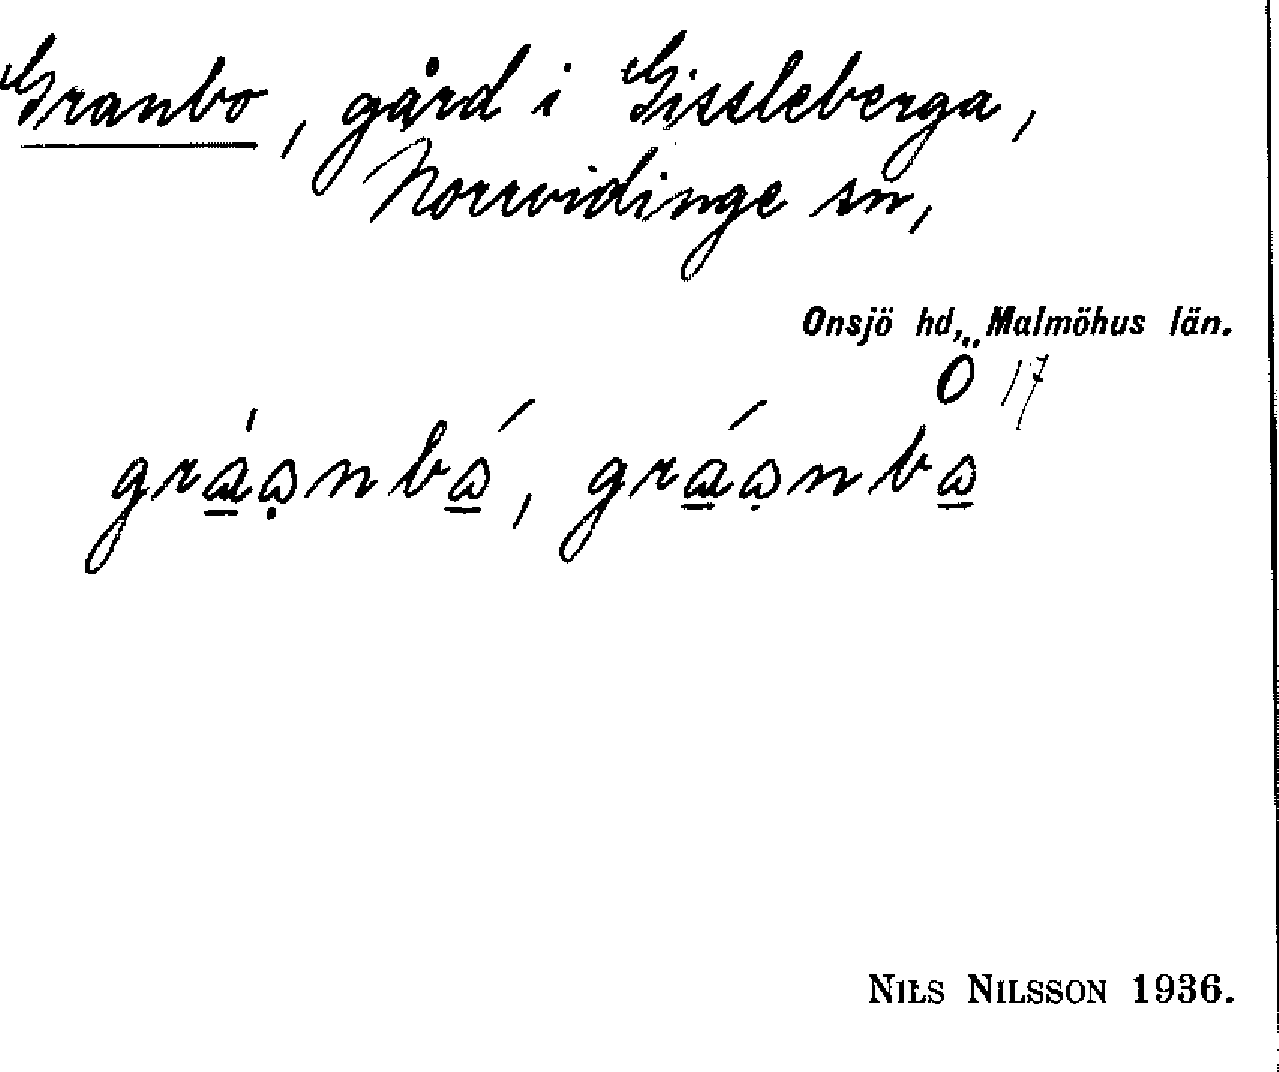 Granbo, gård i Gissleberga,
Norrvidinge sn,
Onsjö hd, Malmöhus län.
Ö 17
NILS NILSSON 1936.